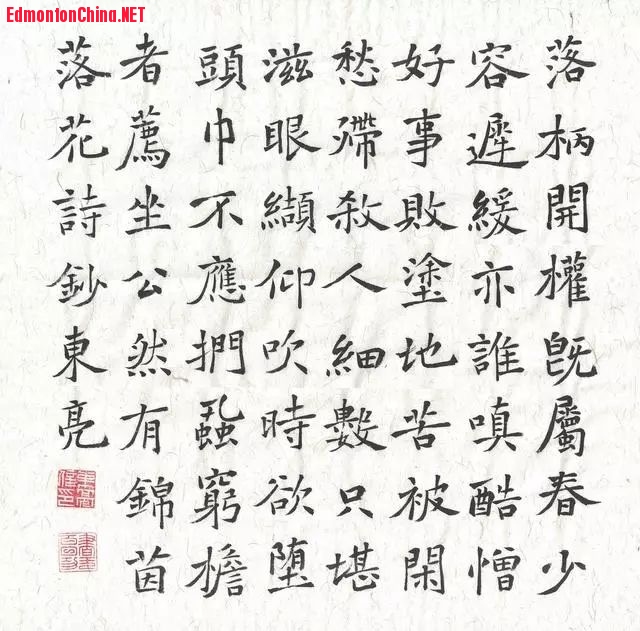 EdmontonChina.NET
落柄開權既屬春少
容遲緩亦誰嗔酷憎
好事敗塗地苦被閑
愁殢殺人細數只堪
滋眼纈仰吹時欲堕
頭巾不應捫蝨窮檐
者薦坐公然有錦茵
落花詩鈔東亮